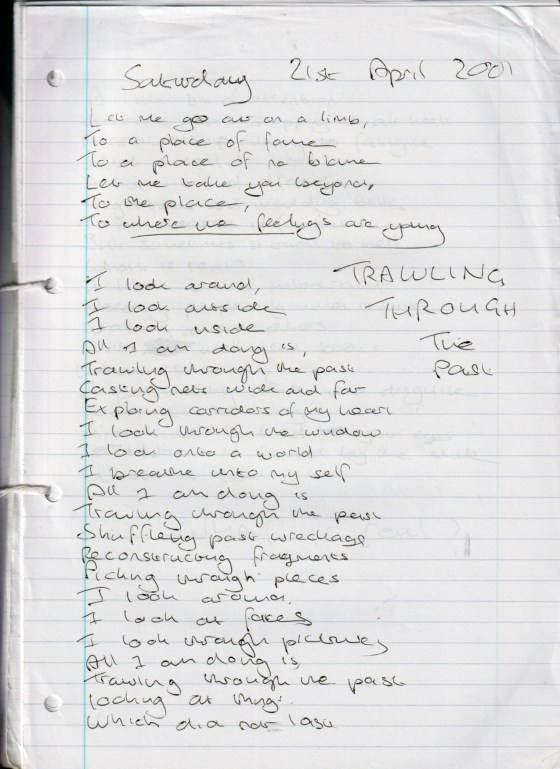 Saturday 21st April 2001
Let me go out on a limb,
To a place of fame
To a place of no blame
Let me take you beyond,
To the place,
To where the feelings are young
TRAWLING
THROUGH
The
Past
I look around,
I look outside
I look inside
All I am doing is,
Trawling through the past
Casting nets wide and far
Exploring corridors of my heart
I look through the window
I look onto a world
I breathe into my self
All I am doing is
Trawling through the past
Shuffling past wreckage
Reconstructing fragments
Picking through pieces
I look around.
I look at faces
I look through pictures
All I am doing is
Trawling through the past
looking at things
Which did not last